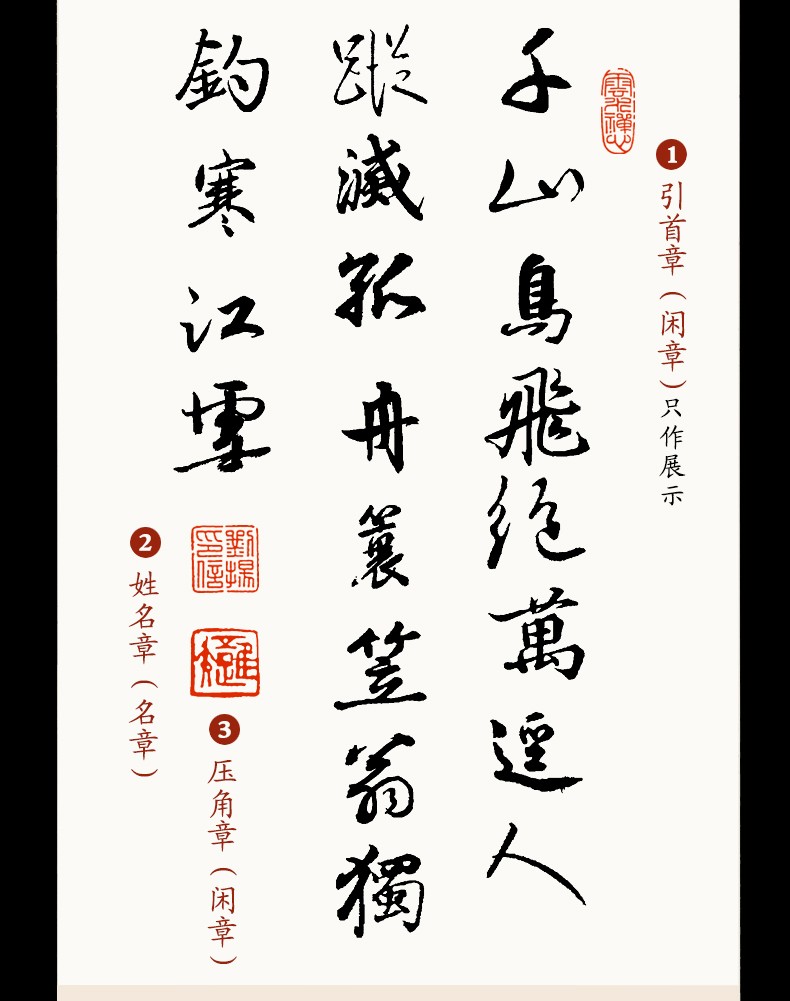 1
引首章（闲章）只作展示
千山鳥飛絕萬逕人
蹤滅孤舟簑笠翁獨
釣寒江雪
劉揚印信
2
姓名章（名章）
3
压角章（闲章）